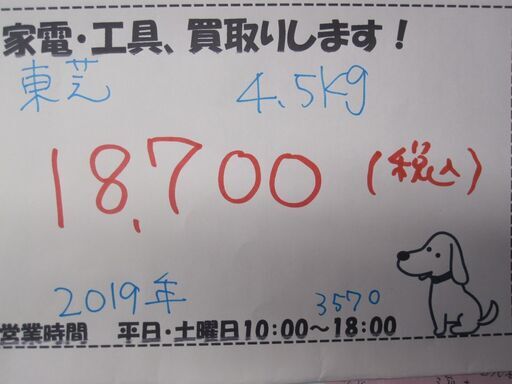 家電・工具、買取りします!
東芝 4.5kg
18,700 (税込)
2019年 3570
営業時間 平日・土曜日10:00〜18:00